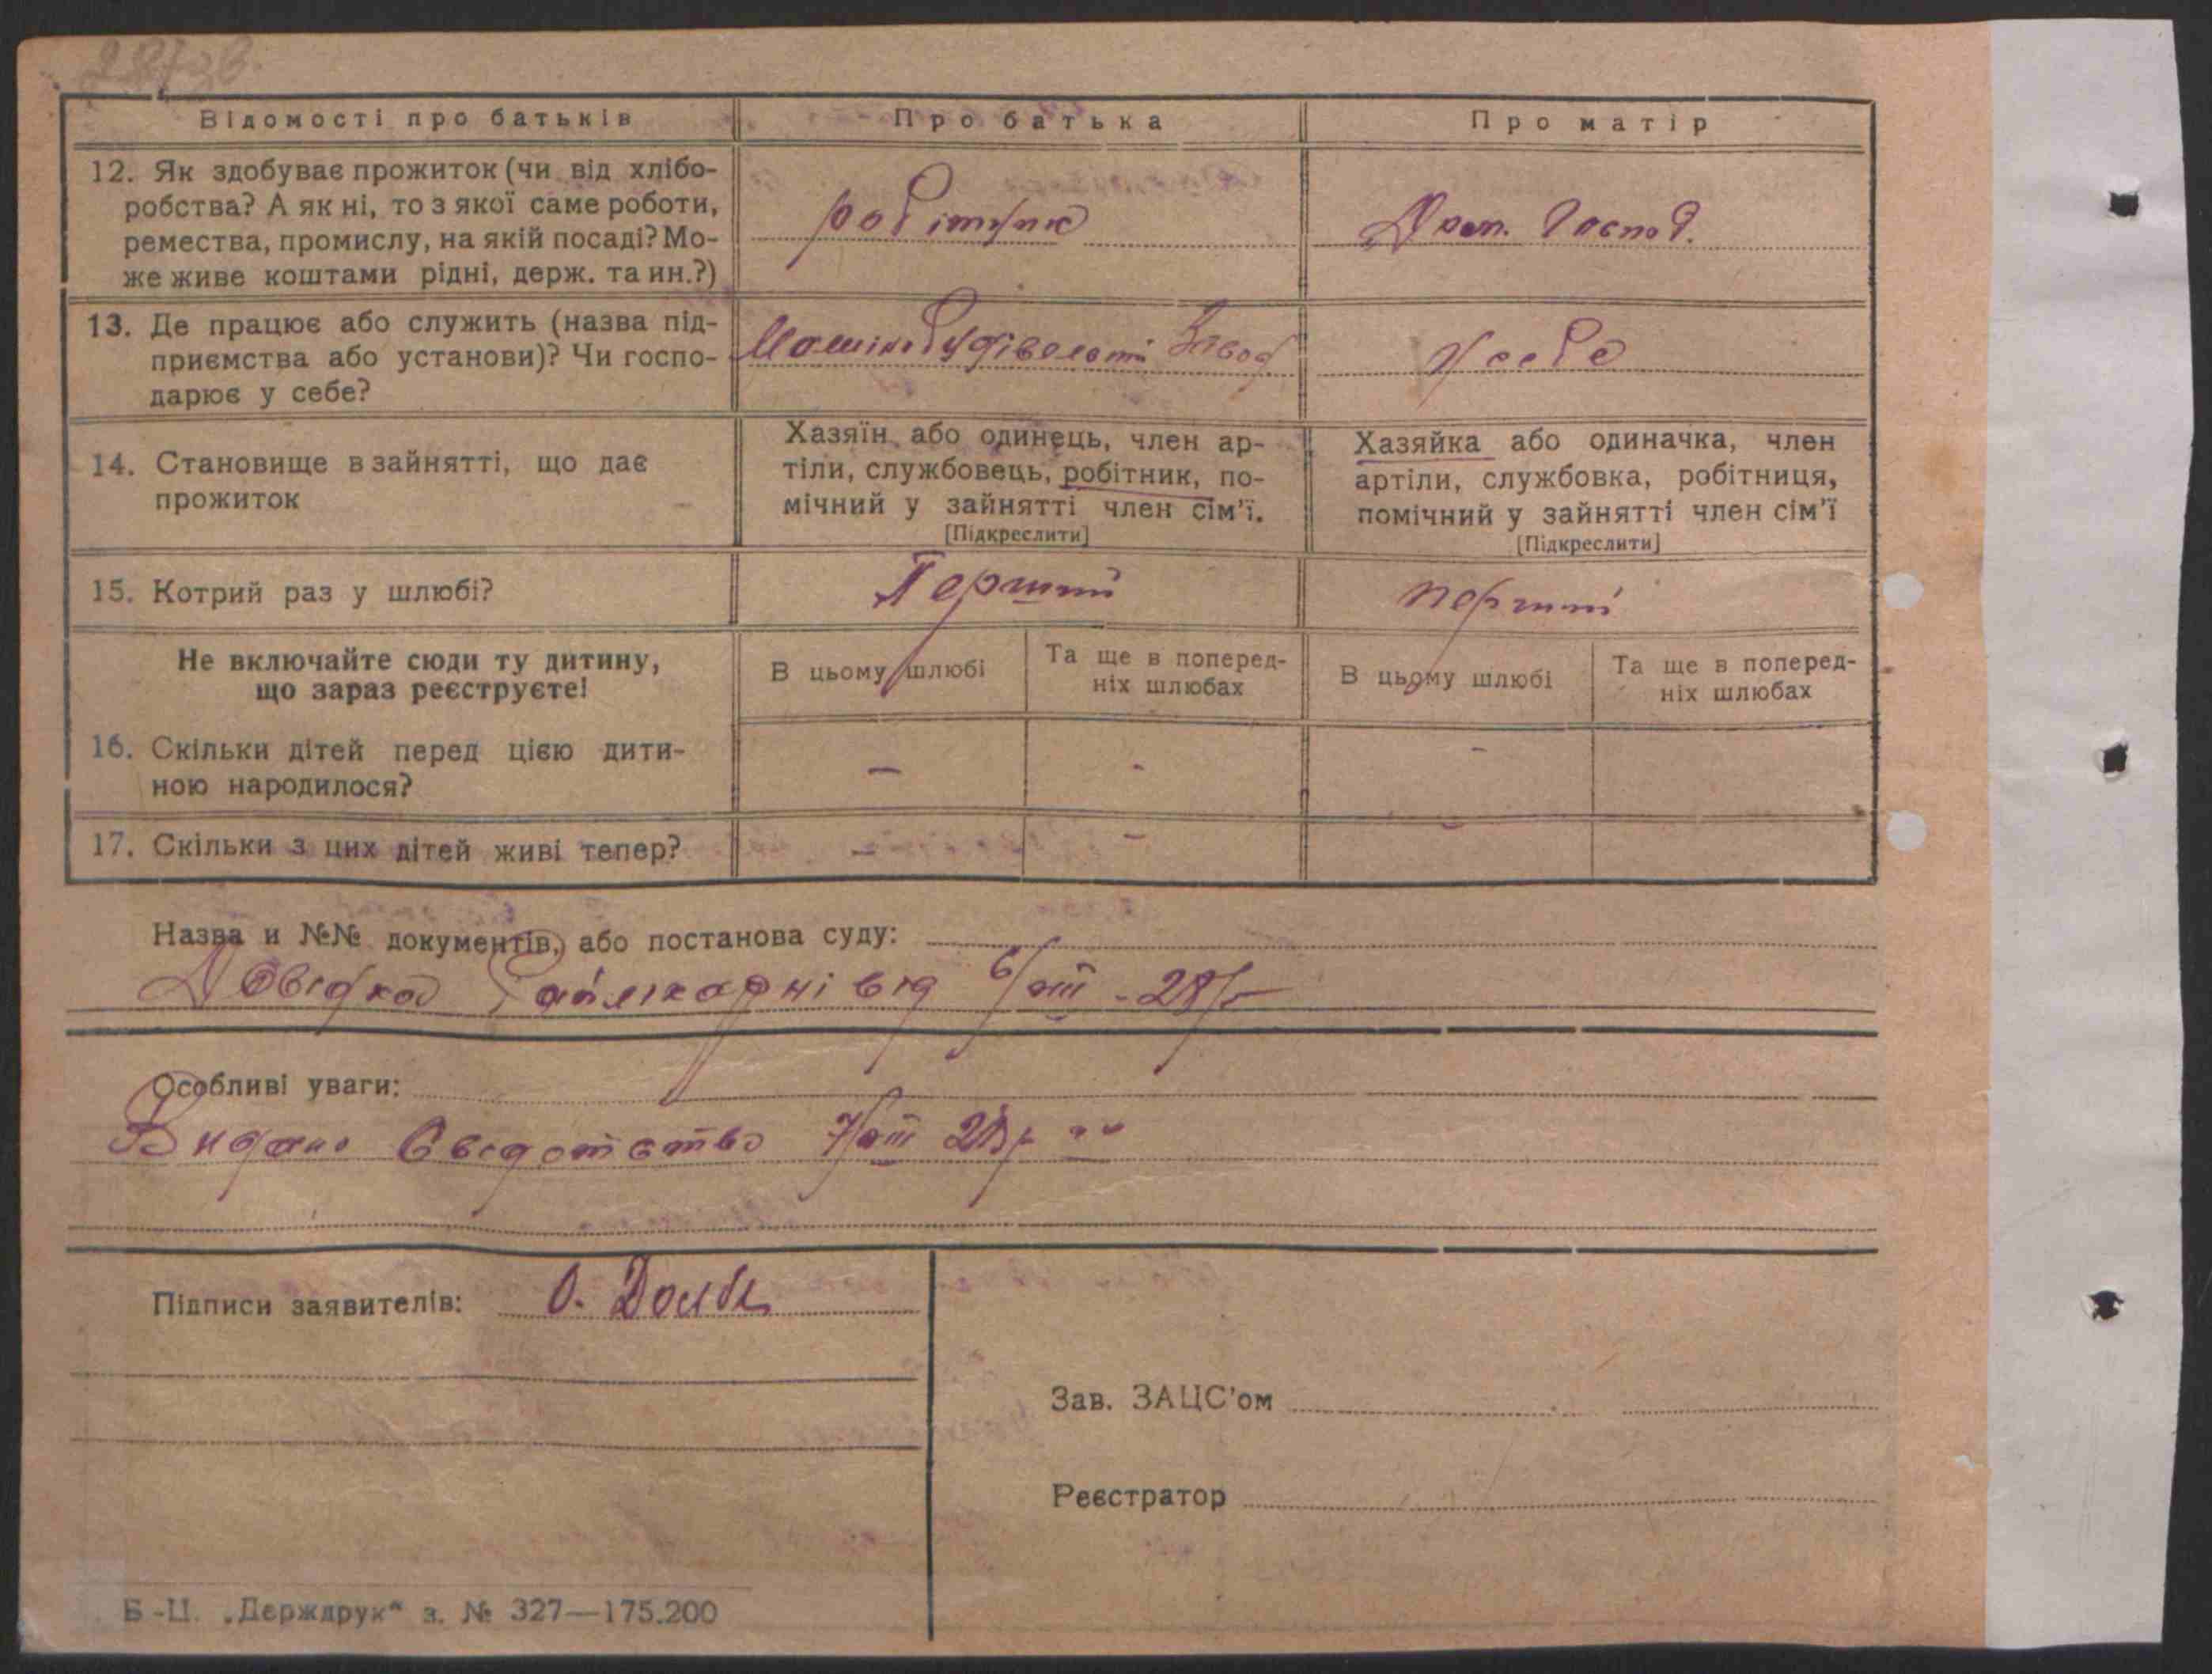 Відомості про батьків
Про батька
Про матір
12. Як здобуває прожиток (чи від хлібо-
робства? А як ні, то з якої саме роботи,
ремества, промислу, на якій посаді? Мо-
же живе коштами рідні, держ. та ин.?)
робітник
Дом. Господ.
13. Де працює або служить (назва під-
приємства або установи)? Чи госпо-
дарює у себе?
Машинобудівельний Завод
у себе
14. Становище в зайнятті, що дає
прожиток
Хазяїн або одинець, член ар-
тіли, службовець, робітник, по-
мічний у зайнятті член сім'ї.
[Підкреслити]
Хазяйка або одиначка, член
артіли, службовка, робітниця,
помічний у зайнятті член сім'ї
[Підкреслити]
15. Котрий раз у шлюбі?
Перший
перший
Не включайте сюди ту дитину,
що зараз реєструєте!
В цьому шлюбі
Та ще в поперед-
ніх шлюбах
В цьому шлюбі
Та ще в поперед-
ніх шлюбах
16. Скільки дітей перед цією дити-
ною народилося?
–
-
-
17. Скільки з цих дітей живі тепер?
–
–
-
Назва и №№ документів, або постанова суду:
Довідка Райлікарні від 6/VIII - 28 р
Особливі уваги:
Видано Свідотство 7/VIII 28 р
Підписи заявителів: О.
Зав. ЗАЦС'ом
Реєстратор
Б-Ц. „Держдрук“ з. № 327—175.200